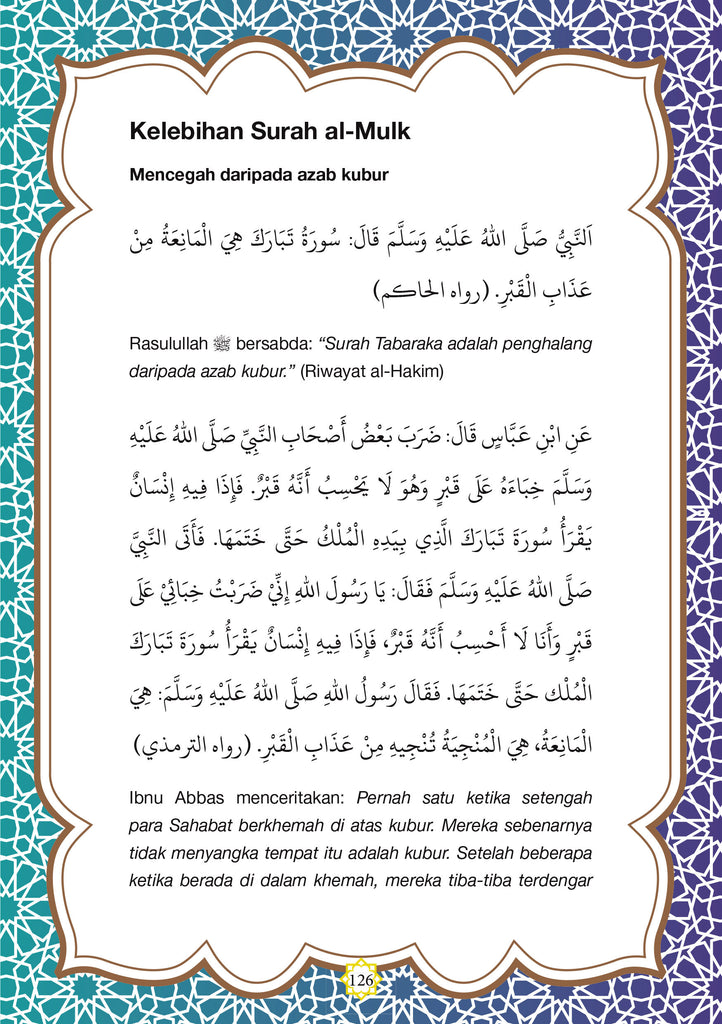 Kelebihan Surah al-Mulk
Mencegah daripada azab kubur
اَلنَّبِيُّ صَلَّى اللهُ عَلَيْهِ وَسَلَّمَ قَالَ: سُورَةُ تَبَارَكَ هِيَ الْمَانِعَةُ مِنْ
عَذَابِ الْقَبْرِ. (رواه الحاكم)
Rasulullah ﷺ bersabda: “Surah Tabaraka adalah penghalang
daripada azab kubur.” (Riwayat al-Hakim)
عَنِ ابْنِ عَبَّاسٍ قَالَ: ضَرَبَ بَعْضُ أَصْحَابِ النَّبِيِّ صَلَّى اللهُ عَلَيْهِ
وَسَلَّمَ خِبَاءَهُ عَلَى قَبْرٍ وَهُوَ لَا يَحْسِبُ أَنَّهُ قَبْرٌ. فَإِذَا فِيهِ إِنْسَانٌ
يَقْرَأُ سُورَةَ تَبَارَكَ الَّذِي بِيَدِهِ الْمُلْكُ حَتَّى خَتَمَهَا. فَأَتَى النَّبِيَّ
صَلَّى اللهُ عَلَيْهِ وَسَلَّمَ فَقَالَ: يَا رَسُولَ اللهِ إِنِّيْ ضَرَبْتُ خِبَائِيْ عَلَى
قَبْرٍ وَأَنَا لَا أَحْسِبُ أَنَّهُ قَبْرٌ، فَإِذَا فِيهِ إِنْسَانٌ يَقْرَأُ سُورَةَ تَبَارَكَ
الْمُلْك حَتَّى خَتَمَهَا. فَقَالَ رَسُولُ اللهِ صَلَّى اللهُ عَلَيْهِ وَسَلَّمَ: هِيَ
الْمَانِعَةُ، هِيَ الْمُنْجِيَةُ تُنْجِيهِ مِنْ عَذَابِ الْقَبْرِ. (رواه الترمذي)
Ibnu Abbas menceritakan: Pernah satu ketika setengah
para Sahabat berkhemah di atas kubur. Mereka sebenarnya
tidak menyangka tempat itu adalah kubur. Setelah beberapa
ketika berada di dalam khemah, mereka tiba-tiba terdengar
126